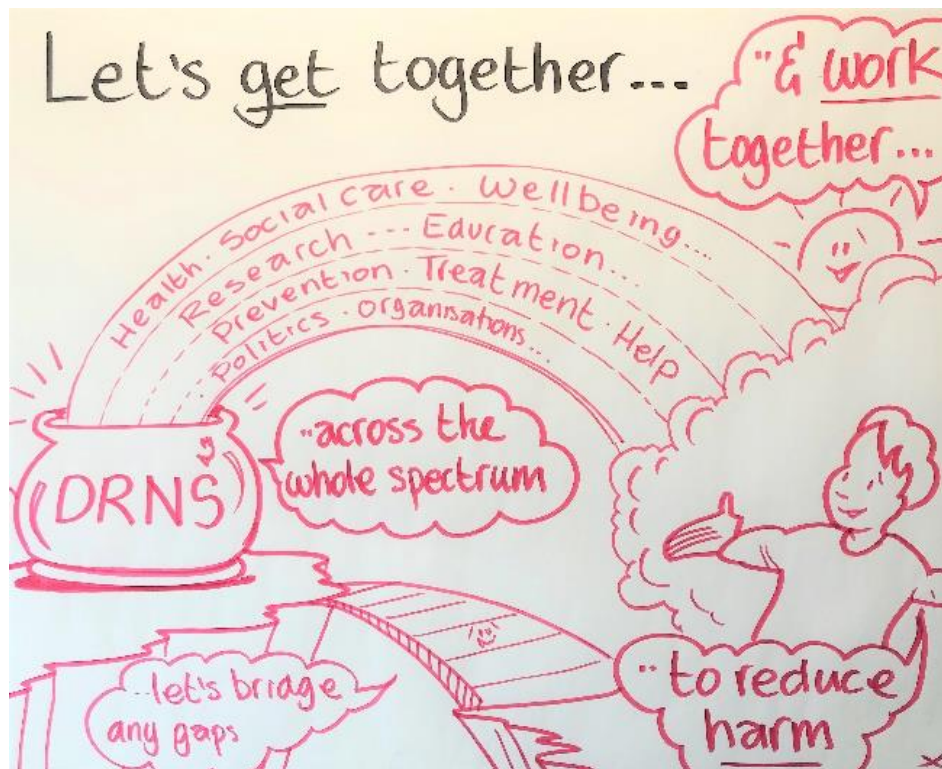 Let's get together...
"& work
together...
Health. Social care. Wellbeing...
Research --- Education...
Prevention. Treatment. Help
Politics. Organisations...
DRNS
"across the
whole spectrum
...let's bridge
any gaps
"to reduce
harm